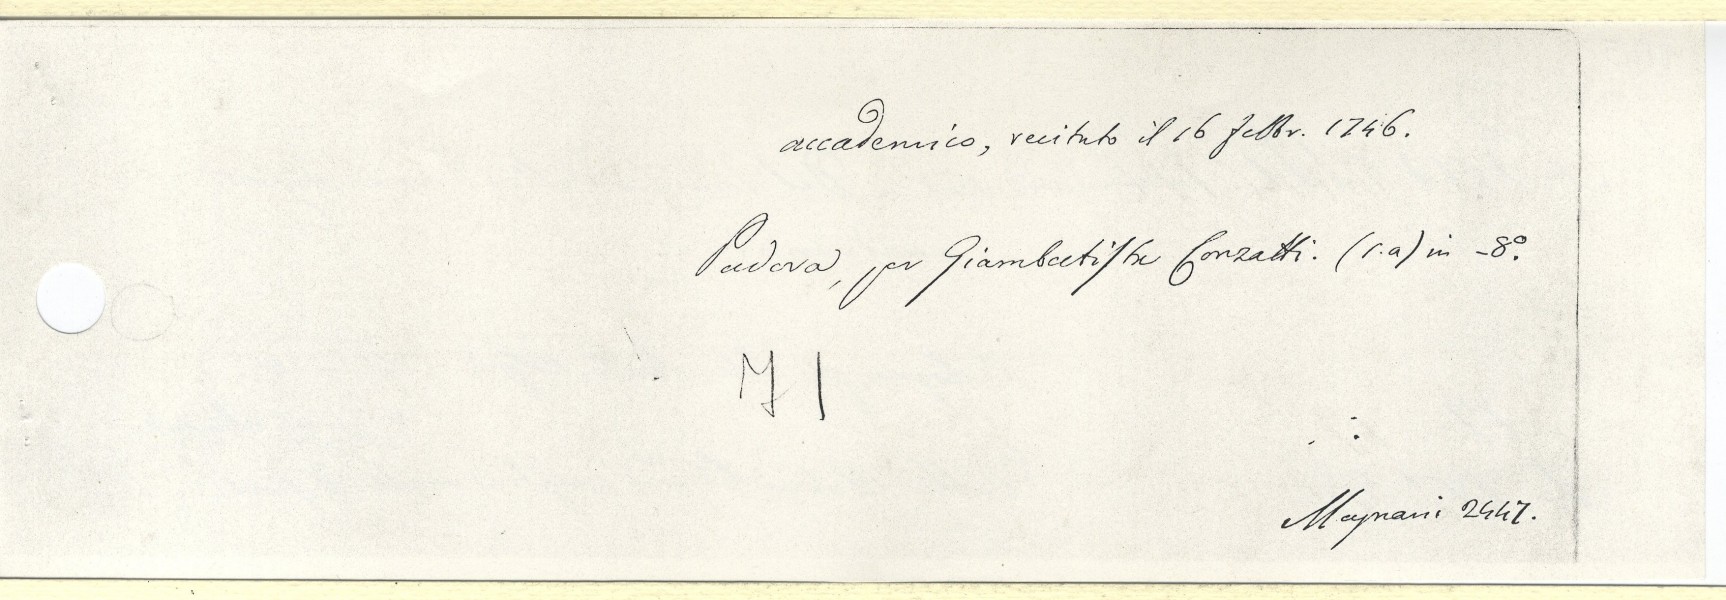 accademico, recitato il 16 febbr. 1746.
Padova, per Giambatista Conzatti. (s.a) in -8°.
Magnani 2447.